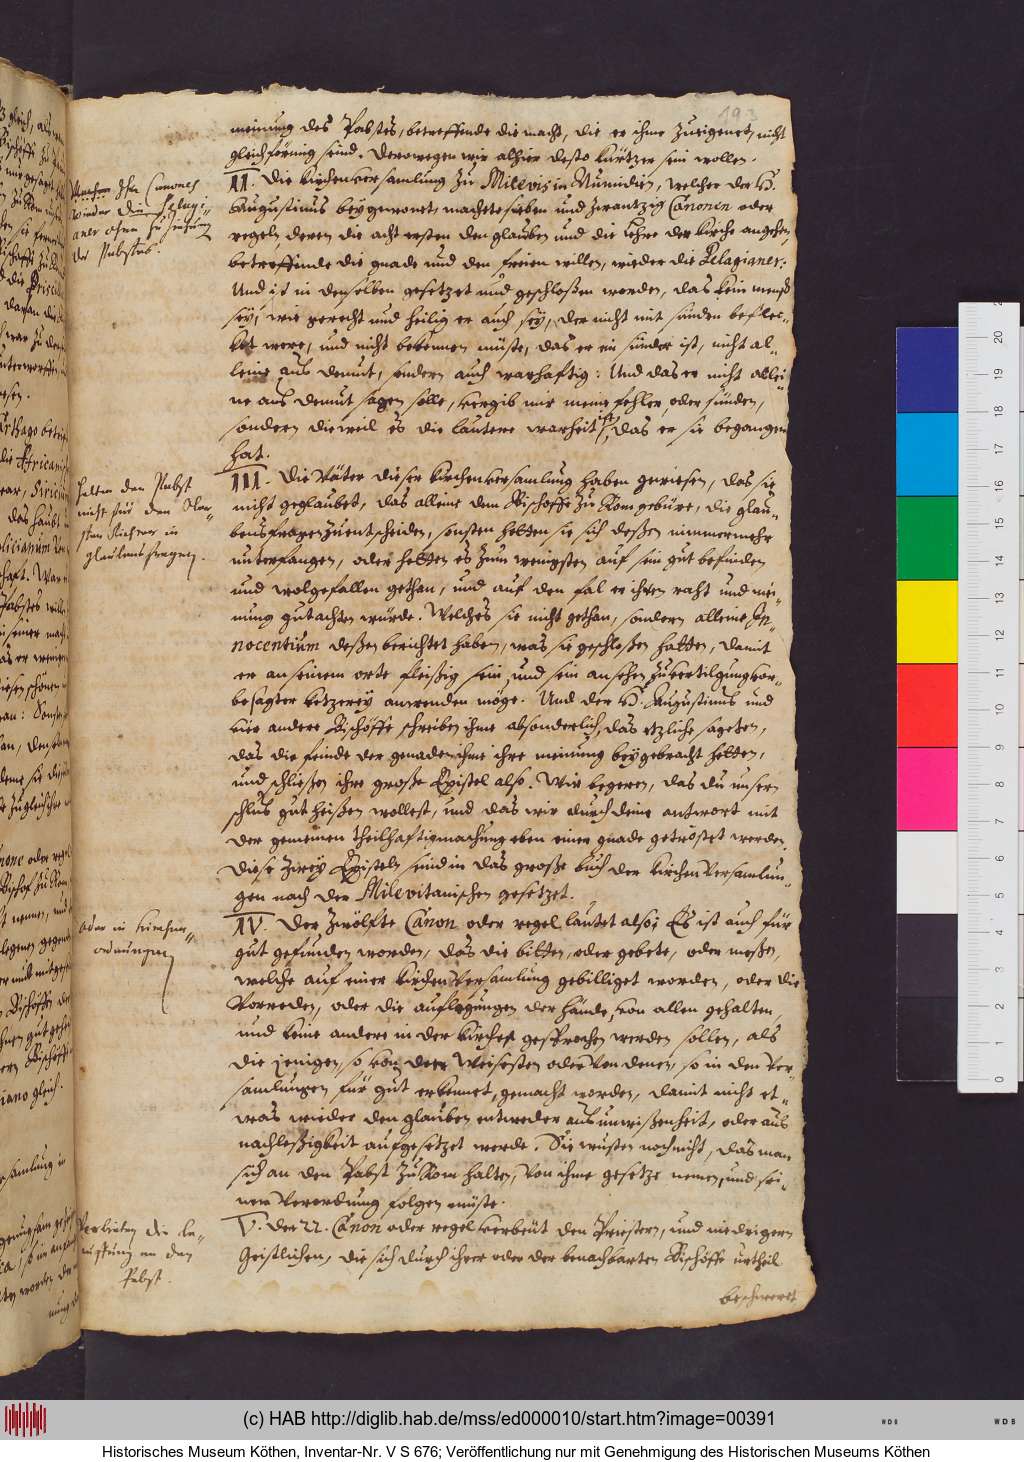 193
meinung des Pabstes, betreffende die macht, die er ihme zueigenet, nicht
gleichförmig seind. Derowegen wir alhier desto kürtzer sein wollen.
II. Die kirchenversamlung zu Milevis in Numidien, welcher der H.
Augustinus beygewonet, machete sieben und zwantzig Canonen oder
regeln deren die acht ersten den glauben und die Lehre der kirche angehen,
betreffende die gnade und den freien willen, wieder die Pelagianer:
Und ist in denselben gesetzet und geschloßen worden, das kein mensch
sey, wie gerecht und heilig er auch sey, der nicht mit sünden beflec-
ket were, und nicht bekennen müste, das er ein sünder ist, nicht al-
leine aus demut, sondern auch warhaftig: Und das er nicht allei-
ne aus demut sagen solle, vergib mir meine fehler, oder sünden,
sondern dieweil es die lautere warheit ist, das er sie begangen
hat.
III. Die Väter dieser kirchenversamlung haben gewiesen, das sie
nicht geglaubet, das alleine dem Bischoffe zu Rom gebüre, die glau-
bensfragen zuentscheiden, sonsten hetten sie sich deßen nimmermehr
unterfangen, oder hetten es zum wenigsten auf sein gut befinden
und wolgefallen gethan, und auf den fal er ihren raht und mei-
nung gutachten würde. Welches sie nicht gethan, sondern alleine In-
nocentium deßen berichtet haben, was sie geschloßen hatten, damit
er an seinem orte fleißig sein, und sein ansehen zuvertilgung vor-
besagter ketzerey anwenden möge. Und der H. Augustinus und
vier andere Bischöffe schreiben ihme absonderlich, das etzliche sageten,
das die feinde der genaden ihme ihre meinung beygebracht hetten,
und schließen ihre große Epistel also. Wir begeren, das du unsern
schlus gut heißen wollest, und das wir durch deine antwort mit
der gemeinen theilhaftigmachung eben einer gnade getröstet werden.
Diese zwey Episteln seind in das große buch der kirchen Versamlun-
gen nach der Milevitanischen gesetzet.
IV. Der zwölfte Canon oder regel lautet also; Es ist auch für
gut gefunden worden, das die bitten, oder gebete, oder meßen,
welche auf einer kirchen Versamlung gebilliget worden, oder die
Vorreden, oder die auflegungen der hände, von allen gehalten,
und keine andere in der kirchen gesprochen werden sollen, als
die jenigen, so von den Weisesten oder von denen, so in den Ver-
samlungen für gut erkennet, gemacht worden, damit nicht et-
was wieder den glauben entweder aus unwißenheit, oder aus
nachleßigkeit aufgesetzet werde. Sie wusten noch nicht, das man
sich an den Pabst zu Rom halten, von ihme gesetze nemen, und sei-
ner Verordnung folgen müste.
V. Der 22. Canon oder regel verbeut den Priestern, und niedrigern
Geistlichen, die sich durch ihrer oder der benachbarten Bischöffe urtheil
beschweret
Machen Ihn Canones
wieder die Pelagi-
aner ohne zuziehung
des Pabstes.
halten den Pabst
nicht für den Ober-
sten Richter in
glaubens fragen.
oder in kirchen-
ordnungen
Verbieten die be-
ruffung an den
Pabst.
(c) HAB http://diglib.hab.de/mss/ed000010/start.htm?image=00391
Historisches Museum Köthen, Inventar-Nr. V S 676; Veröffentlichung nur mit Genehmigung des Historischen Museums Köthen